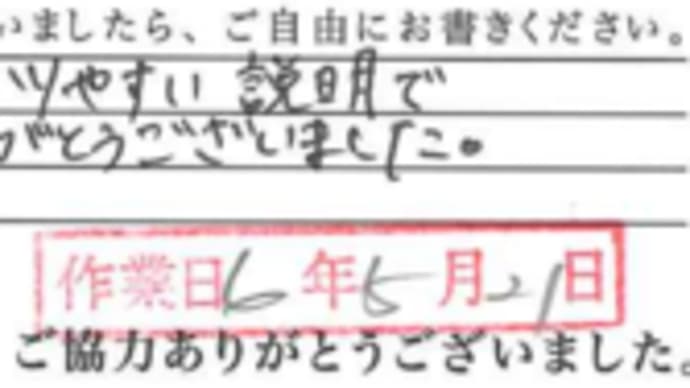 いましたら、ご自由にお書きください。
りやすい説明で
がとうございました。
作業日6年5月21日
ご協力ありがとうございました。